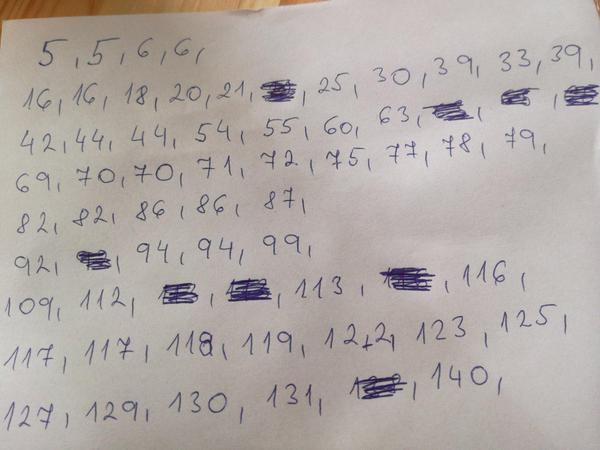 5, 5, 6, 6,
16, 16, 18, 20, 21, , 25, 30, 39, 33, 39,
42, 44, 44, 54, 55, 60, 63, , ,
69, 70, 70, 71, 72, 75, 77, 78, 79,
82, 82, 86, 86, 87,
92, , 94, 94, 99,
109, 112, , , 113, , 116,
117, 117, 118, 119, 122, 123, 125,
127, 129, 130, 131, , 140,